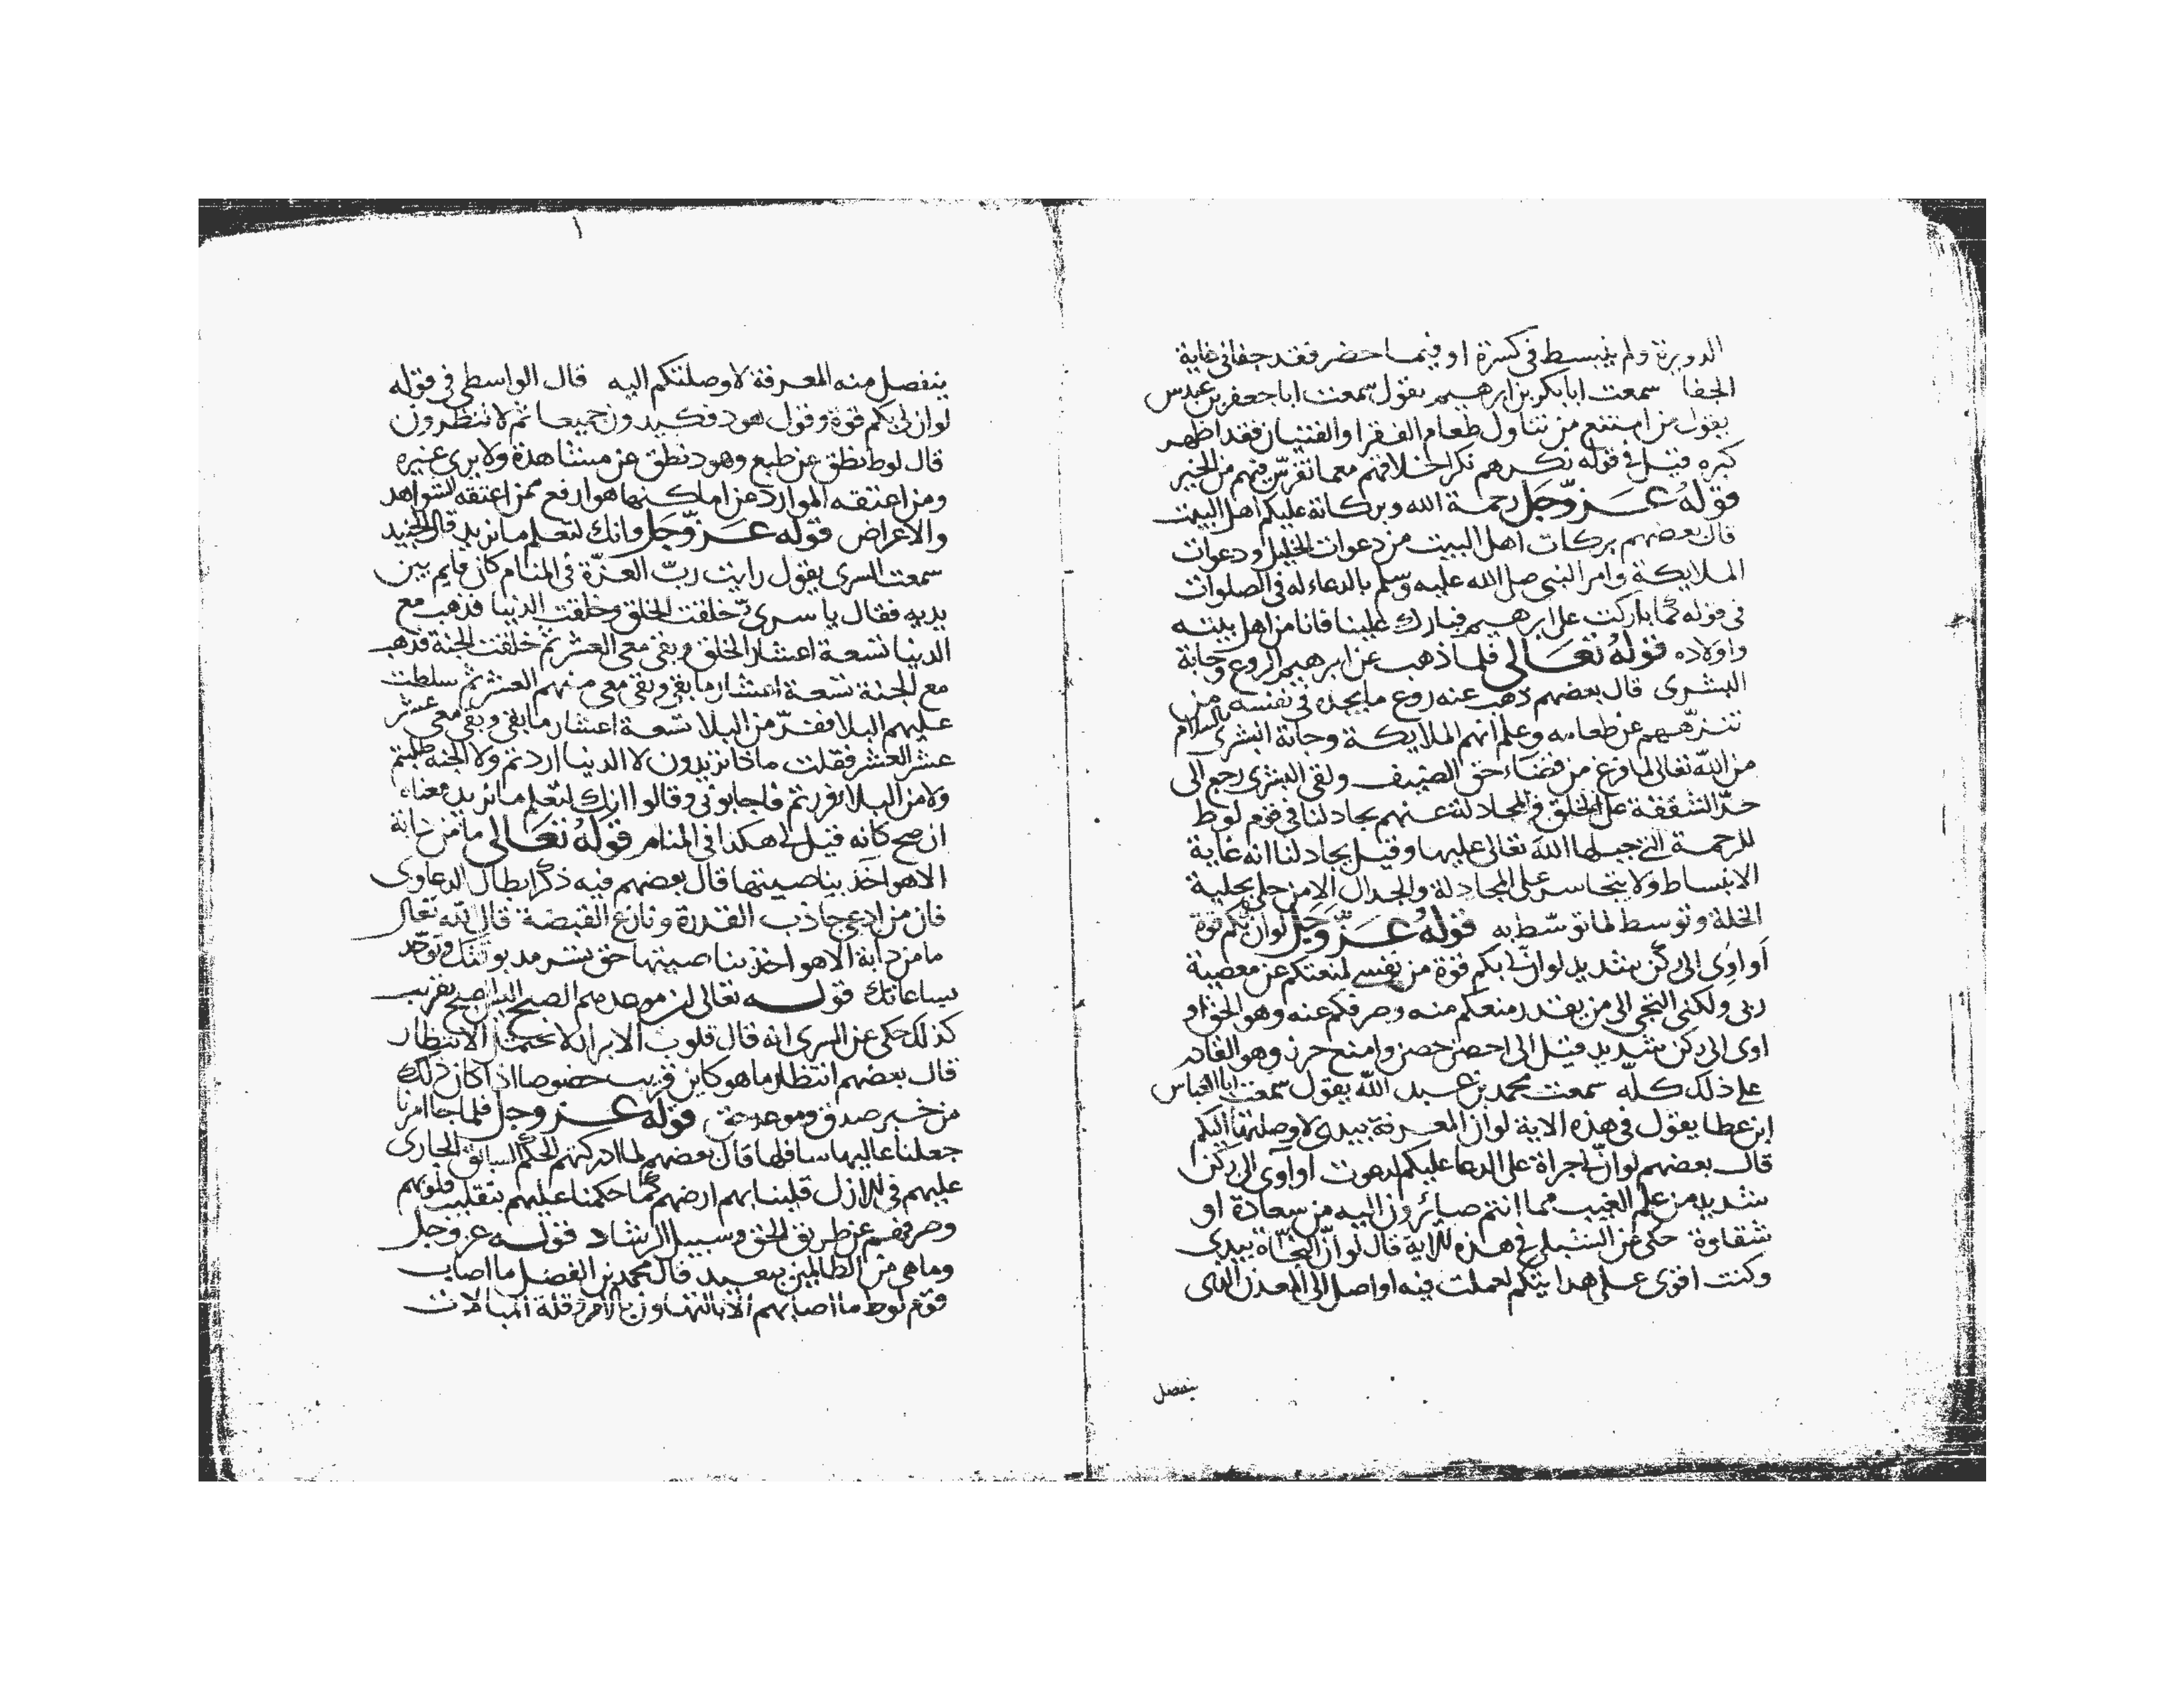 الدويرة ولم ينبسط في كسرة او فيما حضر فقد جفاني غاية
الجفا سمعت ابا بكر بن ابرهيم يقول سمعت ابا جعفر بن عبدس
يقول من امتنع من تناول طعام الفقرا والفتيان فقد اظهر
كبره قيل في قوله نكرهم نكر اخلاقهم معما تفرس فيهم من الخير
قوله عز وجل رحمة الله وبركاته عليكم اهل البيت
قال بعضهم بركات اهل البيت من دعوات الخليل ودعوات
الملايكة وامر النبي صلى الله عليه وسلم بالدعاء له في الصلوات
في قوله كما باركت على ابرهيم فبارك علينا فانا من اهل بيته
واولاده قوله تعالى فلما ذهب عن ابرهيم الروع وجاته
البشرى قال بعضهم ذهب عنه روع ما يجده في نفسه من
تنزههم عن طعامه وعلم انهم الملايكة وجاته البشرى بالسلام
من الله تعالى لما فرغ من قضاء حق الضيف ولقى البشرى رجع الى
حد الشفقة على الخلق في المجادلة عنهم يجادلنا في قوم لوط
للرحمة التي جبله الله تعالى عليها وقيل يجادلنا انه غاية
الانبساط ولا يتحاسر على المجادلة والجدال الا من حلى بحلية
الخلة وتوسط لما توسط به قوله عز وجل لو ان لي بكم قوة
او اوي الى ركن شديد لو ان لي بكم قوة من نفسي لمنعتكم عن معصية
ربي ولكني التجي الى من يقدر منعكم منه وصرفكم عنه وهو الحق او
اوى الى ركن شديد قيل الى احصن حصن وامنع حرز وهو القادر
على ذلك كله سمعت محمد بن عبد الله يقول سمعت ابا العباس
ابن عطا يقول في هذه الاية لو ان المعرفة بيدي لاوصلتها اليكم
قال بعضهم لو ان لي جراة على الدعا عليكم لدعوت او آوى الى ركن
شديد من علم الغيب مما انتم صائرون اليه من سعادة او
شقاوة حكى عن الشبلي في هذه الاية قال لو ان النجاة بيدي
وكنت اقوى على هدايتكم لعملت فيه او اصل الى المعدن الذي
ينفصل
ينفصل منه المعرفة لاوصلتكم اليه قال الواسطي في قوله
لو ان لي بكم قوة وقول هود فكيدون جميعا ثم لا تنظرون
قال لوط نطق عن طبع وهود نطق عن مشاهدة ولا يرى غيره
ومن اعتقه الموارد عن اماكنها هو ارفع ممن اعتقه الشواهد
والاعراض قوله عز وجل وانك لتعلم ما نريد قال الجنيد
سمعت السري يقول رايت رب العزة في المنام كان قايم بين
يديه فقال يا سري خلقت الخلق وخلقت الدنيا فذهب مع
الدنيا تسعة اعشار الخلق وبقي معي العشر ثم خلقت الجنة فذهب
مع الجنة تسعة اعشار ما بقي وبقي معي منهم العشر ثم سلطت
عليهم البلا ففر من البلا تسعة اعشار ما بقي وبقي معي عشر
عشر العشر فقلت ماذا تريدون لا الدنيا اردتم ولا الجنة طلبتم
ولا من البلا فررتم فاجابوني وقالوا انك لتعلم ما نريد معناه
ان صح كانه قيل لي هكذا في المنام قوله تعالى ما من دابة
الا هو آخذ بناصيتها قال بعضهم فيه ذكر ابطال الدعاوى
فان من ادعى جاذب القدرة ونازع القبضة قال الله تعالى
ما من دابة الا هو اخذ بناصيتها حق
ساعاتك قوله تعالى ان موعدهم الصبح اليس الصبح بقريب
كذلك حكى عن السري انه قال قلوب الابرار لا تحتمل الانتظار
قال بعضهم انتظار ما هو كاين قريب خصوصا اذا كان ذلك
من خبر صدق وموعد حق قوله عز وجل فلما جا امرنا
جعلنا عاليها سافلها قال بعضهم لما ادركتهم الحكم السابق الجاري
عليهم في الازل قلبنا بهم ارضهم كما حكمنا عليهم بتقليب قلوبهم
وصرفهم عن طريق الحق وسبيل الرشاد قوله عز وجل
وما هي من الظالمين ببعيد قال محمد بن الفضل ما اصاب
قوم لوط ما اصابهم الا بالتهاون بالامر وقلة المبالات